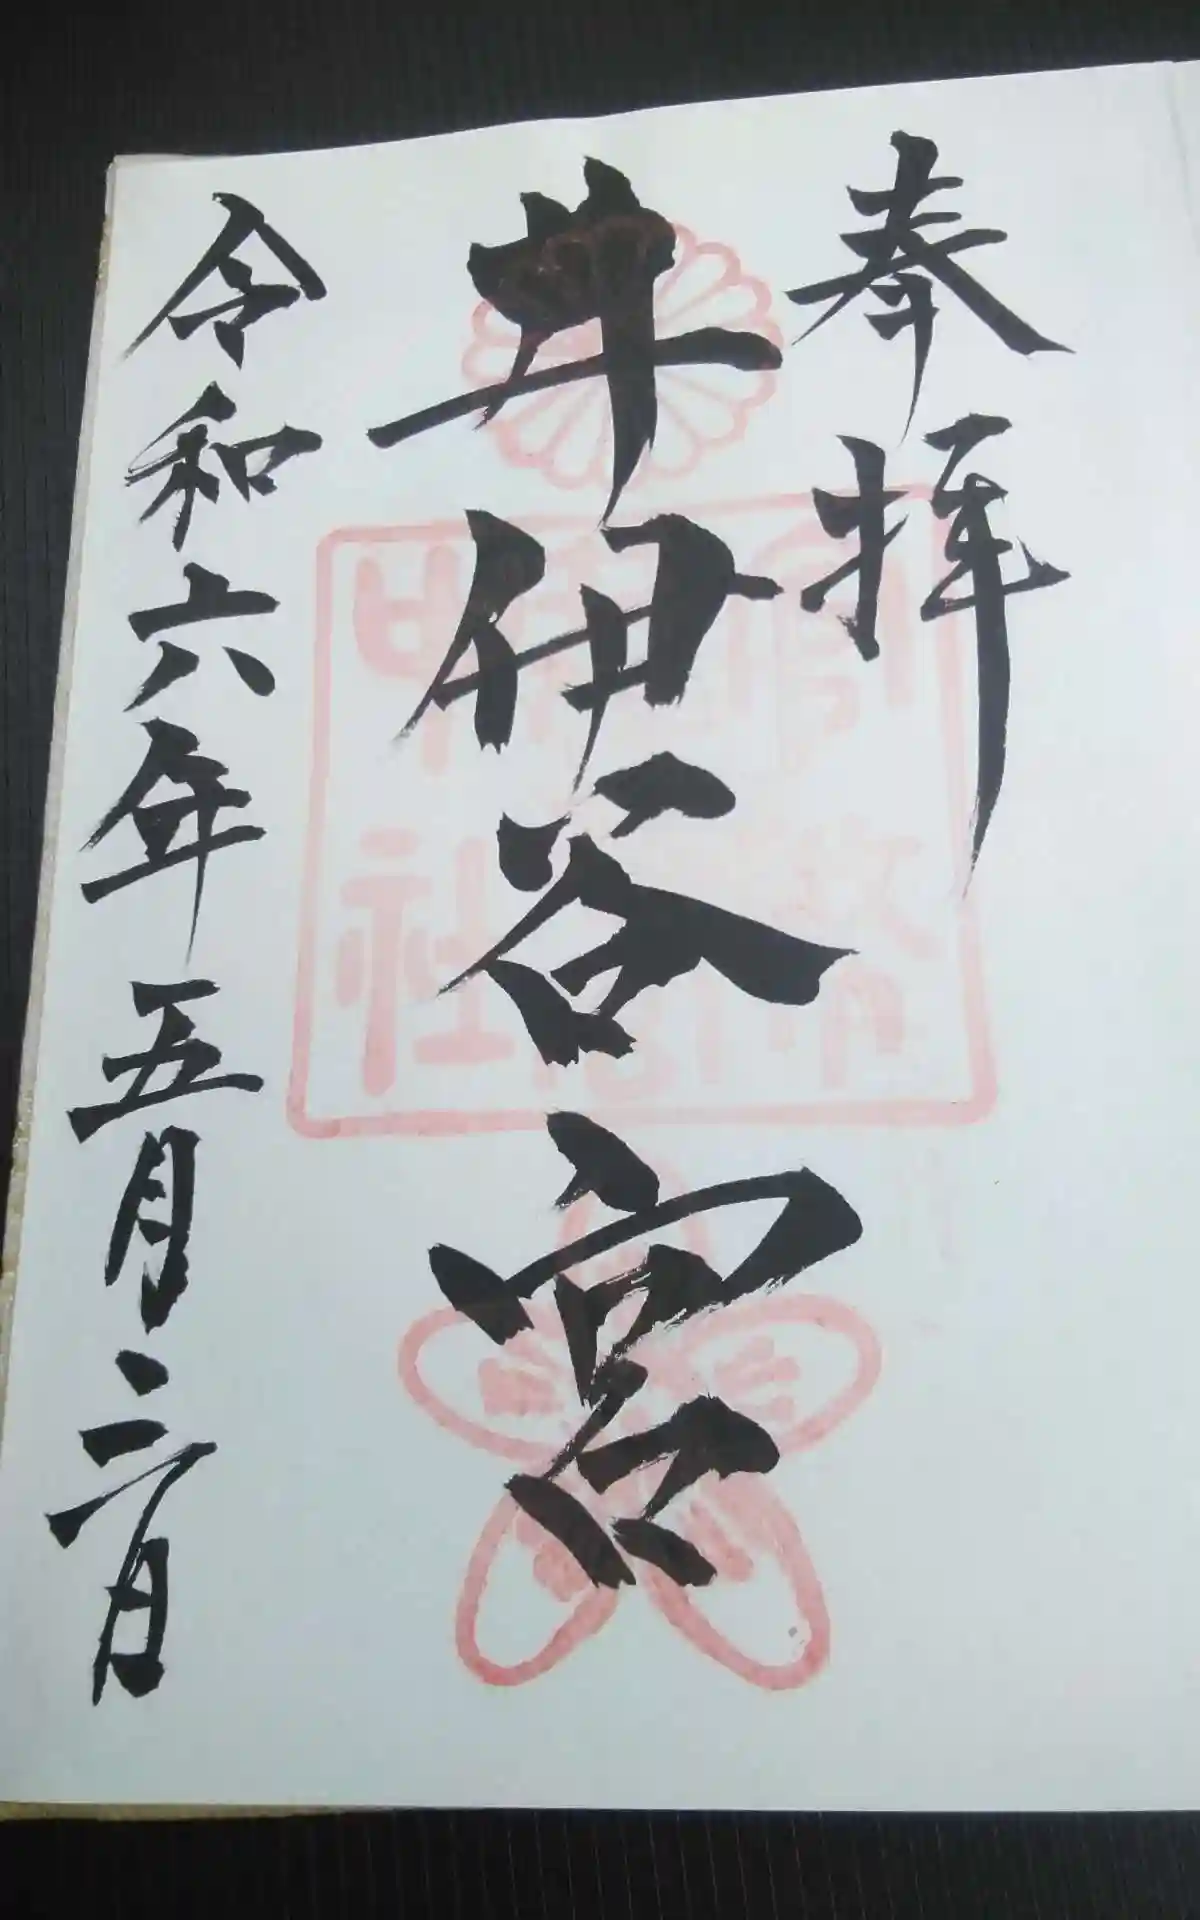 奉拝
井伊谷宮
令和六年五月二日